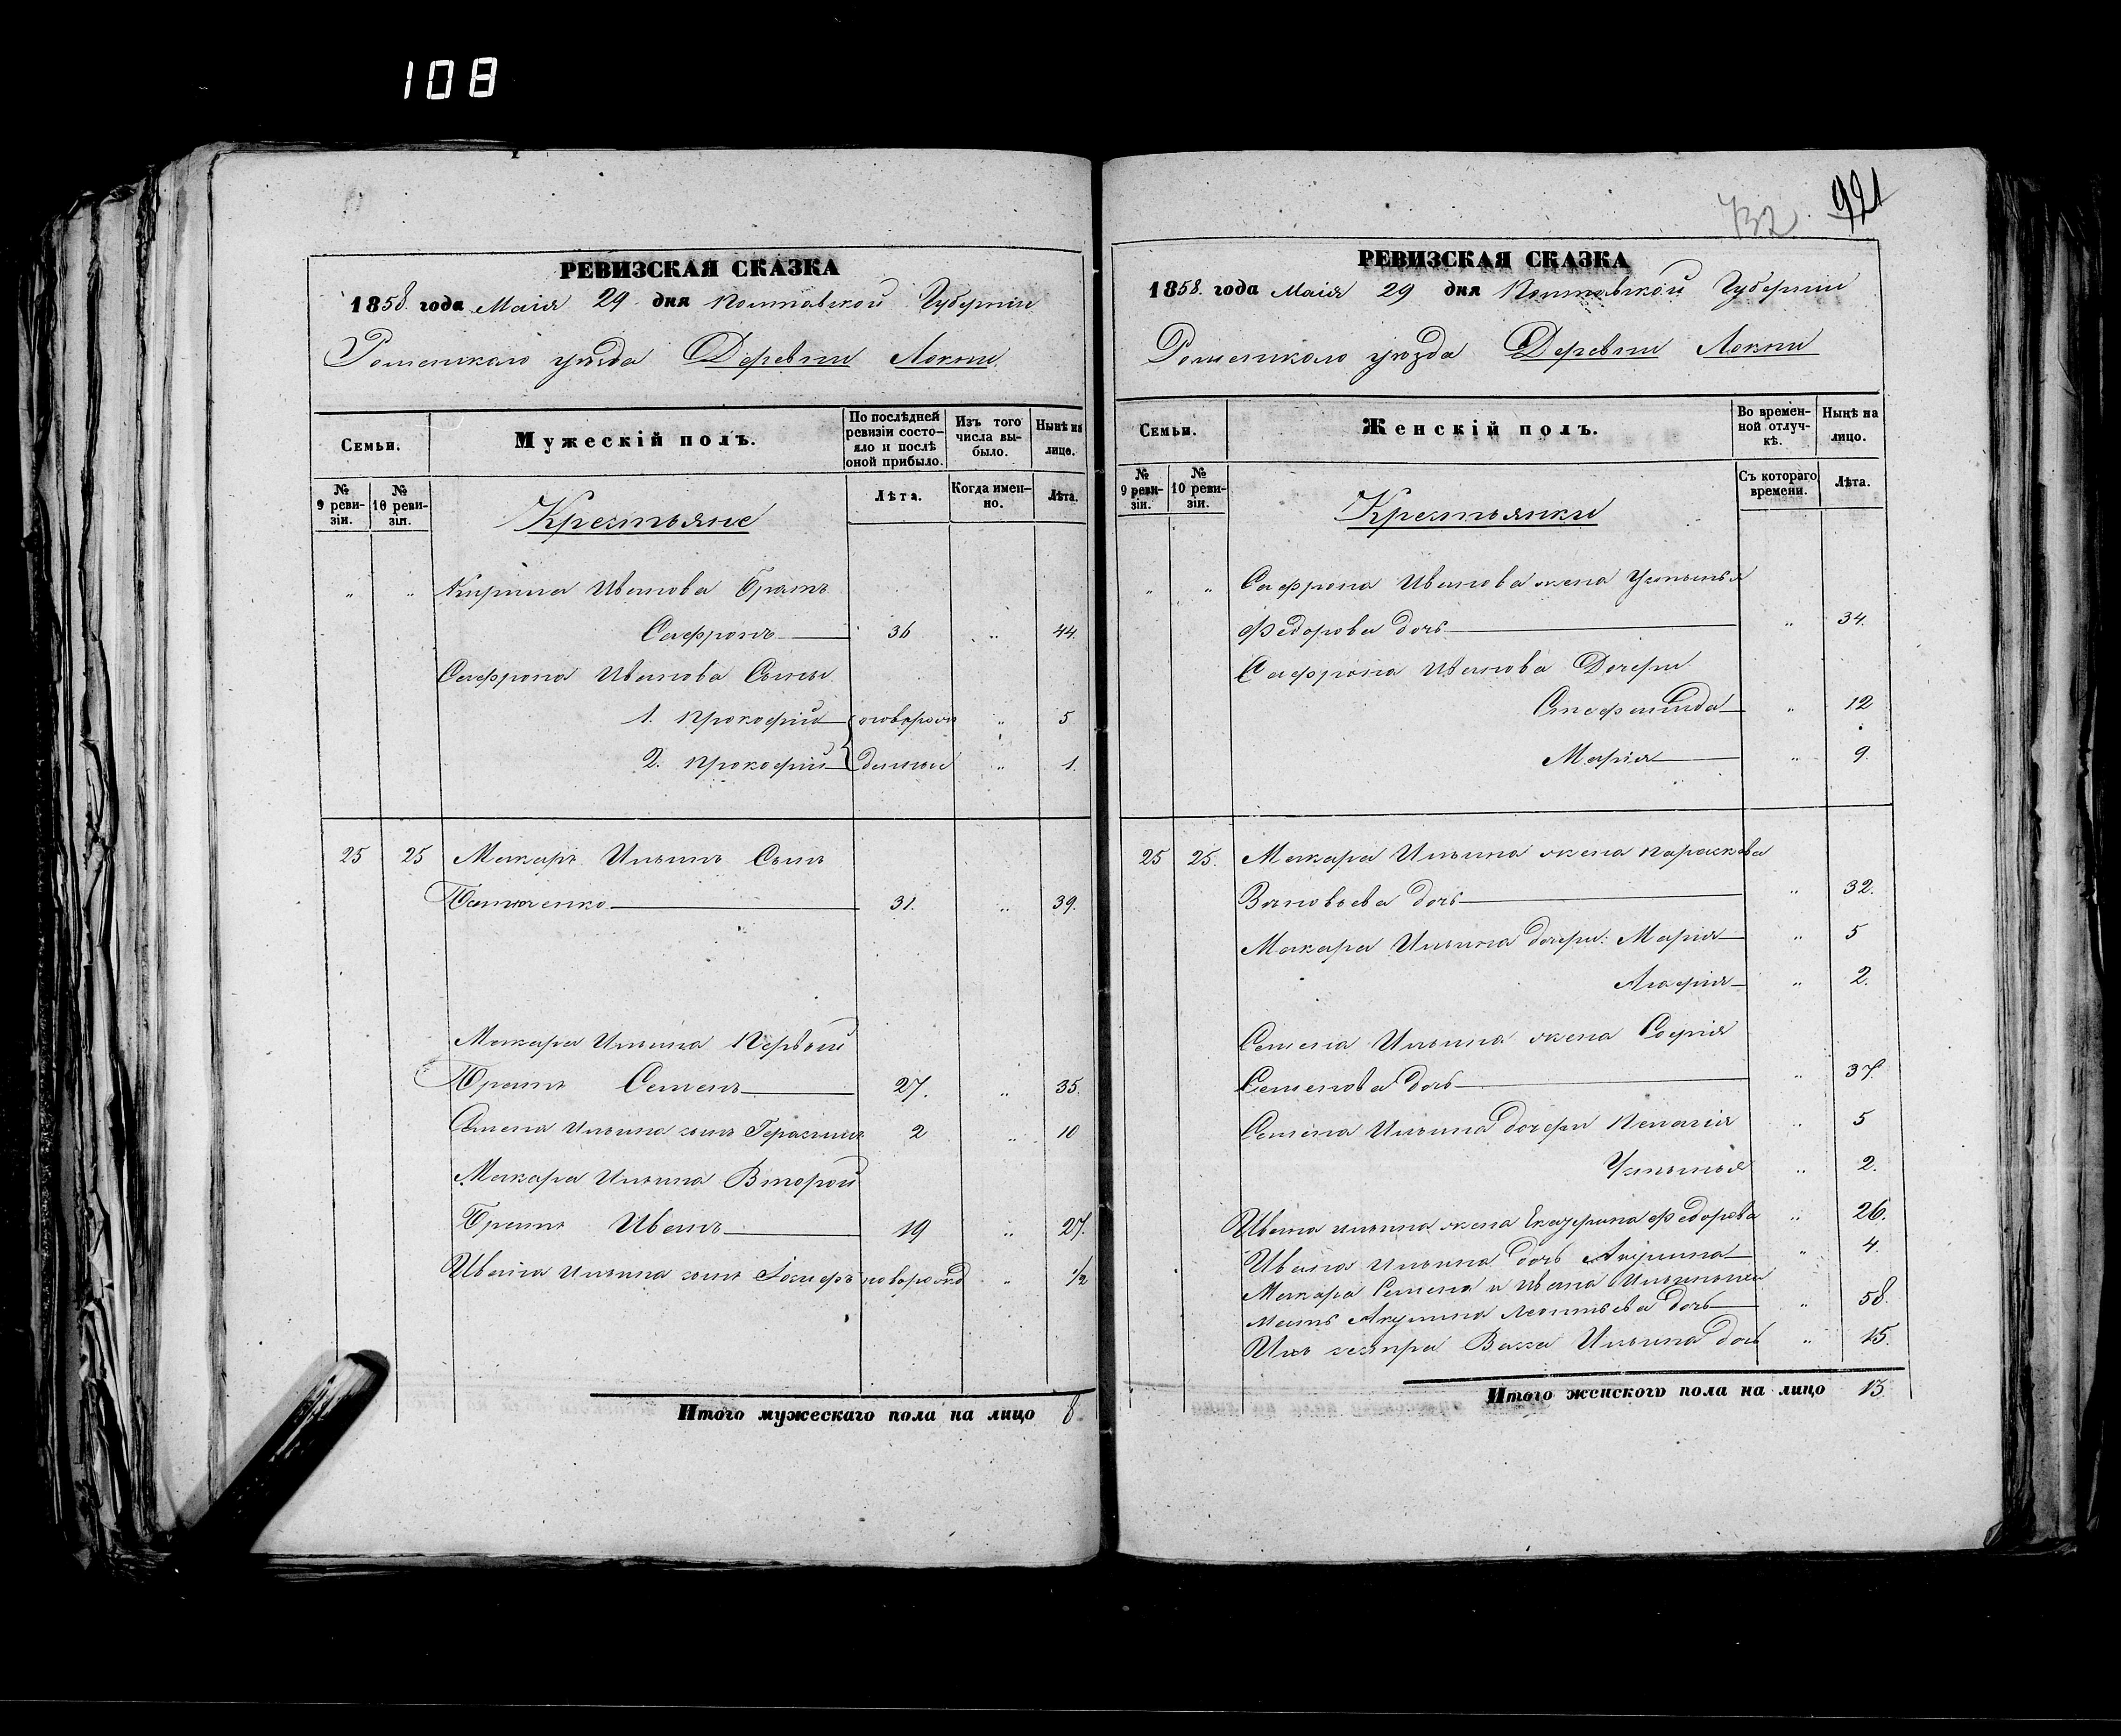 108
РЕВИЗСКАЯ СКАЗКА
1858. года Маія 29 дня Полтавской Губерніи
Роменскаго уѣзда Деревни Локни.
Семьи.
Мужескій полъ.
По послѣдней ревизіи состояло и послѣ оной прибыло.
Изъ того числа выбыло.
Нынѣ на лицо.
№ 9 ревизіи.
№ 10 ревизіи.
Крестьяне
Лѣта.
Когда именно.
Лѣта.
" " Кирила Иванова Братъ
Сафронъ 36 " 44.
Сафрона Иванова Сыны
1. Прокофій новорож " 5
2. Прокофій денные " 1.
25 25 Макаръ Ильинъ Сынъ
31. " 39.
Макара Ильина Первый
Братъ Семенъ 27. " 35.
Семена Ильина сынъ Герасимъ 2 " 10
Макара Ильина Второй
Братъ Иванъ 19 " 27.
Ивана Ильина сынъ Іосифъ новорожд " 1/2
Итого мужескаго пола на лицо 8
732. 921
РЕВИЗСКАЯ СКАЗКА
1858. года Маія 29 дня Полтавской Губерніи
Роменскаго уѣзда Деревни Локни
Семьи.
Женскій полъ.
Во временной отлучкѣ.
Нынѣ на лицо.
№ 9 ревизіи.
№ 10 ревизіи.
Крестьянки
Съ котораго времени.
Лѣта.
" " Сафрона Иванова жена Устинья
Федорова дочь " 34.
Сафрона Иванова Дочери
Степанида " 12
Марія " 9.
25 25. Макара Ильина жена Параскева
дочь " 32.
Макара Ильина дочери: Марія " 5
Агафія " 2.
Семена Ильина жена Софія
Семенова дочь " 37.
Семена Ильина дочери Пелагія " 5
Устинья " 2.
Ивана Ильина жена Екатерина Федорова " 26.
Ивана Ильина дочь Акулина " 4.
Макара Семена и Ивана Ильиныхъ
мать Акулина Леонтьева дочь " 58.
Ихъ сестра Васса Ильина дочь " 15.
Итого женского пола на лицо 13